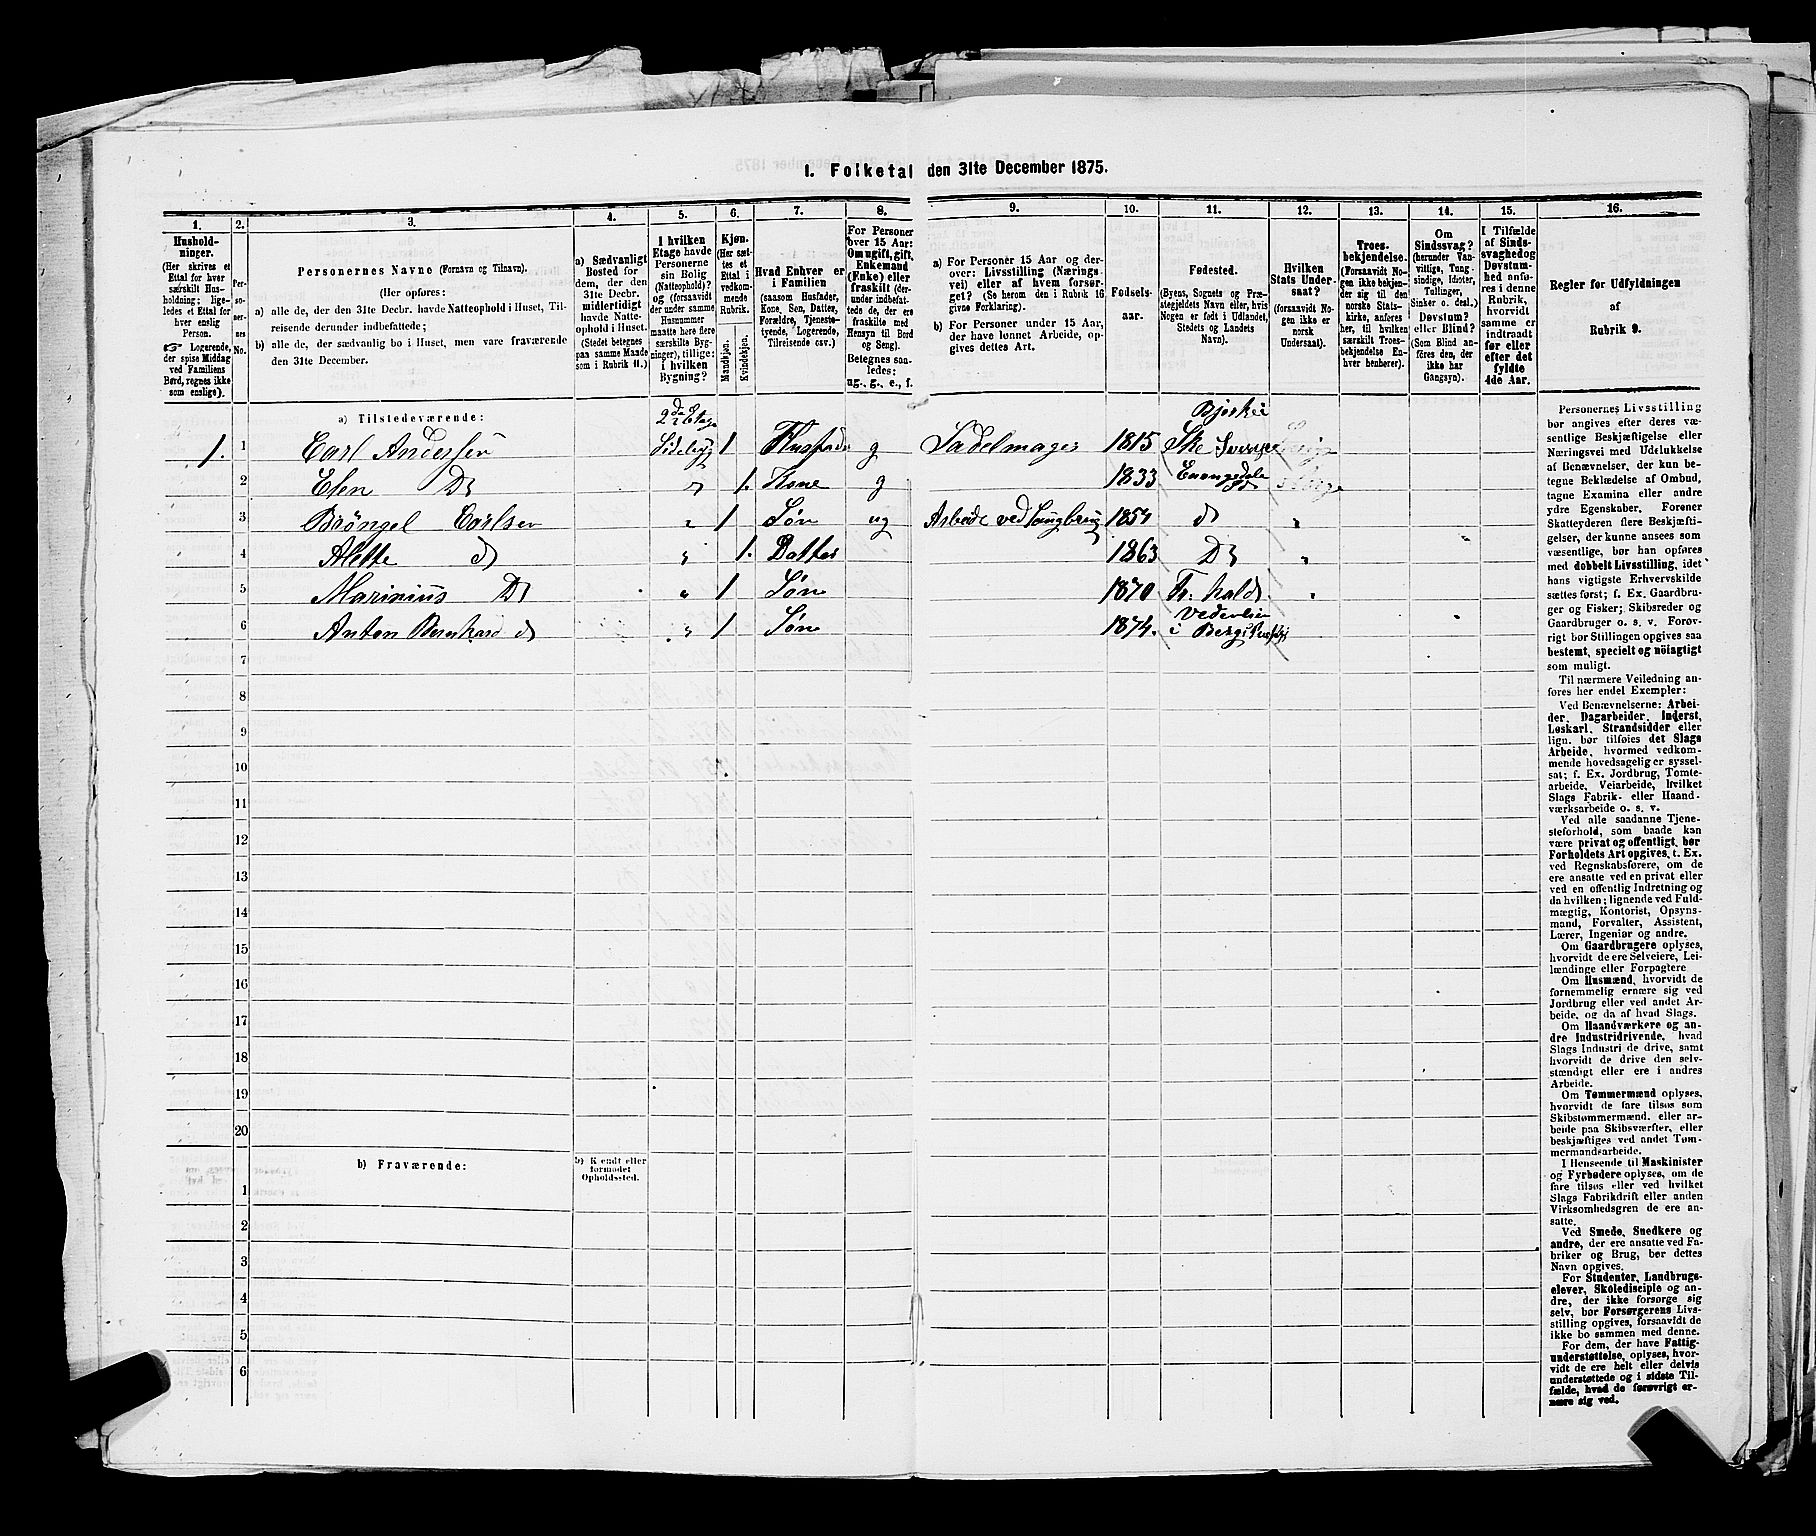 I. Folketal den 31te December 1875.
1. 2. 3. 4. 5. 6. 7. 8. 9. 10. 11. 12. 13. 14. 15. 16.
Hushold-
ninger.
(Her skrives et
Ettal for hver
særskilt Hus-
holdning; lige-
ledes et Ettal for
hver enslig
Person.
☞ Logerende,
der spise Middag
ved Familiens
Bord, regnes ikke
som enslige).
Per-
so-
ner-
nes
No.
Personernes Navne (Fornavn og Tilnavn).
(Her opføres:
a) alle de, der den 31te Decbr. havde Natteophold i Huset, Til-
reisende derunder indbefattede;
b) alle de, der sædvanlig bo i Huset, men vare fraværende
den 31te December.
a) Sædvanligt
Bosted for
dem, der den
31te Decbr.
midlertidigt
havde Natte-
ophold i Huset.
(Stedet betegnes
paa samme Maade
som i Rubrik 11.)
I hvilken
Etage havde
Personerne
sin Bolig
(Natteophold)?
og (forsaavidt
der under samme
Husnummer
maatte høre flere
særskilte Byg-
ninger), tillige:
i hvilken
Bygning?
Kjøn.
(Her sæt-
tes et
Ettal i
vedkom-
mende
Rubrik.
Mandkjøn.
Kvindekjøn.
Hvad Enhver er
i Familien
(saasom Husfader,
Kone, Søn, Datter,
Forældre, Tjeneste-
tyende, Logerende,
Tilreisende osv.)
For Personer
over 15 Aar:
Om ugift, gift,
Enkemand
(Enke) eller
fraskilt (der-
under indbefat-
tede de, der ere
fraskilte med
Hensyn til Bord
og Seng).
Betegnes saa-
ledes:
ug., g., e., f.
a) For Personer 15 Aar og der-
over: Livsstilling (Nærings-
vei) eller af hvem forsør-
get? (Se herom den i Rubrik 16
givne Forklaring).
b) For Personer under 15 Aar,
der have lønnet Arbeide, op-
gives dettes Art.
Fødsels-
aar.
Fødested.
(Byens, Sognets og Præ-
stegjeldets Navn eller, hvis
Nogen er født i Udlandet,
Stedets og Landets
Navn).
Hvilken
Stats Under-
saat?
(forsaavidt No-
gen ikke er
norsk
Undersaat).
Troes-
bekjendelse.
(Forsaavidt No-
gen ikke bekjen-
der sig til den
norske Stats-
kirke, anføres
her, til hvilken
særskilt Troes-
bekjendelse En-
hver henhører).
Om
Sindssvag?
(herunder Van-
vittige, Tung-
sindige, Idioter,
Tullinger,
Sinker o. desl.)
Døvstum?
eller Blind?
(Som Blind an-
føres den, der
ikke har
Gangsyn).
I Tilfælde
af Sinds-
svaghed og
Døvstum-
hed anfø-
res i denne
Rubrik,
hvorvidt
samme er
indtraadt
før eller
efter det
fyldte
4de Aar.
Regler for Udfyldningen
af
Rubrik 9.
a) Tilstedeværende:
1. 1 Carl Andersen Sidebyg 1 Husfader g Sadelmager 1815
2 Elen Do " 1. Kone g 1833
3 Carlsen " 1 Søn ug Arbeide ved 1857 do "
4 Alette do " 1. Datter 1863 Do "
5 Marinius Do " 1 Søn 1870 Fr. hald "
6 Anton Bernhard do " 1 Søn 1874. i Berg
7
8
9
10
11
12
13
14
15
16
17
18
19
20
b) Fraværende:
b) Kjendt eller
formodet
Opholdssted.
1
2
3
4
5
6
Personernes Livsstilling
bør angives efter deres væ-
sentlige Beskjæftigelse eller
Næringsvei med Udelukkelse
af Benævnelser, der kun be-
tegne Beklædelse af Ombud,
tagne Examina eller andre
ydre Egenskaber. Forener
Skatteyderen flere Beskjæfti-
gelser, der kunne ansees som
væsentlige, bør han opføres
med dobbelt Livsstilling, idet
hans vigtigste Erhvervskilde
sættes først; f. Ex. Gaardbru-
ger og Fisker; Skibsreder og
Gaardbruger o. s. v. Forøv-
rigt bør Stillingen opgives saa
bestemt, specielt og nöiagtigt
som muligt.
Til nærmere Veiledning an-
føres her endel Exempler:
Ved Benævnelserne: Arbei-
der, Dagarbeider, Inderst,
Løskarl, Strandsidder eller
lign. bør tilføies det Slags
Arbeide, hvormed vedkom-
mende hovedsagelig er syssel-
sat; f. Ex. Jordbrug, Tomte-
arbeide, Veiarbeide, hvilket
Slags Fabrik- eller Haand-
værksarbeide o. s. v.
Ved alle saadanne Tjene-
steforhold, som baade kan
være privat og offentligt, bør
Forholdets Art opgives, t. Ex.
ved Regnskabsførere, om de
ere ansatte ved en privat eller
ved en offentlig Indretning og
da hvilken; lignende ved Fuld-
mægtig, Kontorist, Opsyns-
mand, Forvalter, Assistent,
Lærer, Ingeniør og andre.
Om Gaardbrugere oplyses,
hvorvidt de ere Selveiere, Lei-
lændinge eller Forpagtere
Om Husmænd, hvorvidt de
fornemmelig ernære sig ved
Jordbrug eller ved andet Ar-
beide, og da af hvad Slags.
Om Haandværkere og an-
dre Industridrivende, hvad
Slags Industri de drive, samt
hvorvidt de drive den selv-
stændigt eller ere i andres
Arbeide.
Om Tømmermænd oplyses,
hvorvidt de fare tilsøs som
Skibstømmermænd, eller ar-
beide paa Skibsværfter, eller
beskjæftiges ved andet Tøm-
mermandsarbeide.
I Henseende til Maskinister
og Fyrbødere oplyses, om de
fare tilsøs eller ved hvilket
Slags Fabrikdrift eller anden
Virksomhedsgren de ere an-
satte.
Ved Smede, Snedkere og
andre, der ere ansatte ved Fa-
briker og Brug, bør dettes
Navn opgives.
For Studenter, Landbrugs-
elever, Skoledisciple og an-
dre, der ikke forsørge sig
selv, bør Forsørgerens Livs-
stilling opgives, forsaavidt de
ikke bo sammen med denne.
For dem, der have Fattig-
understøttelse, oplyses, hvor-
vidt de ere helt eller delvis
understøttede og i sidste Til-
fælde, hvad de forøvrigt er-
nære sig ved.